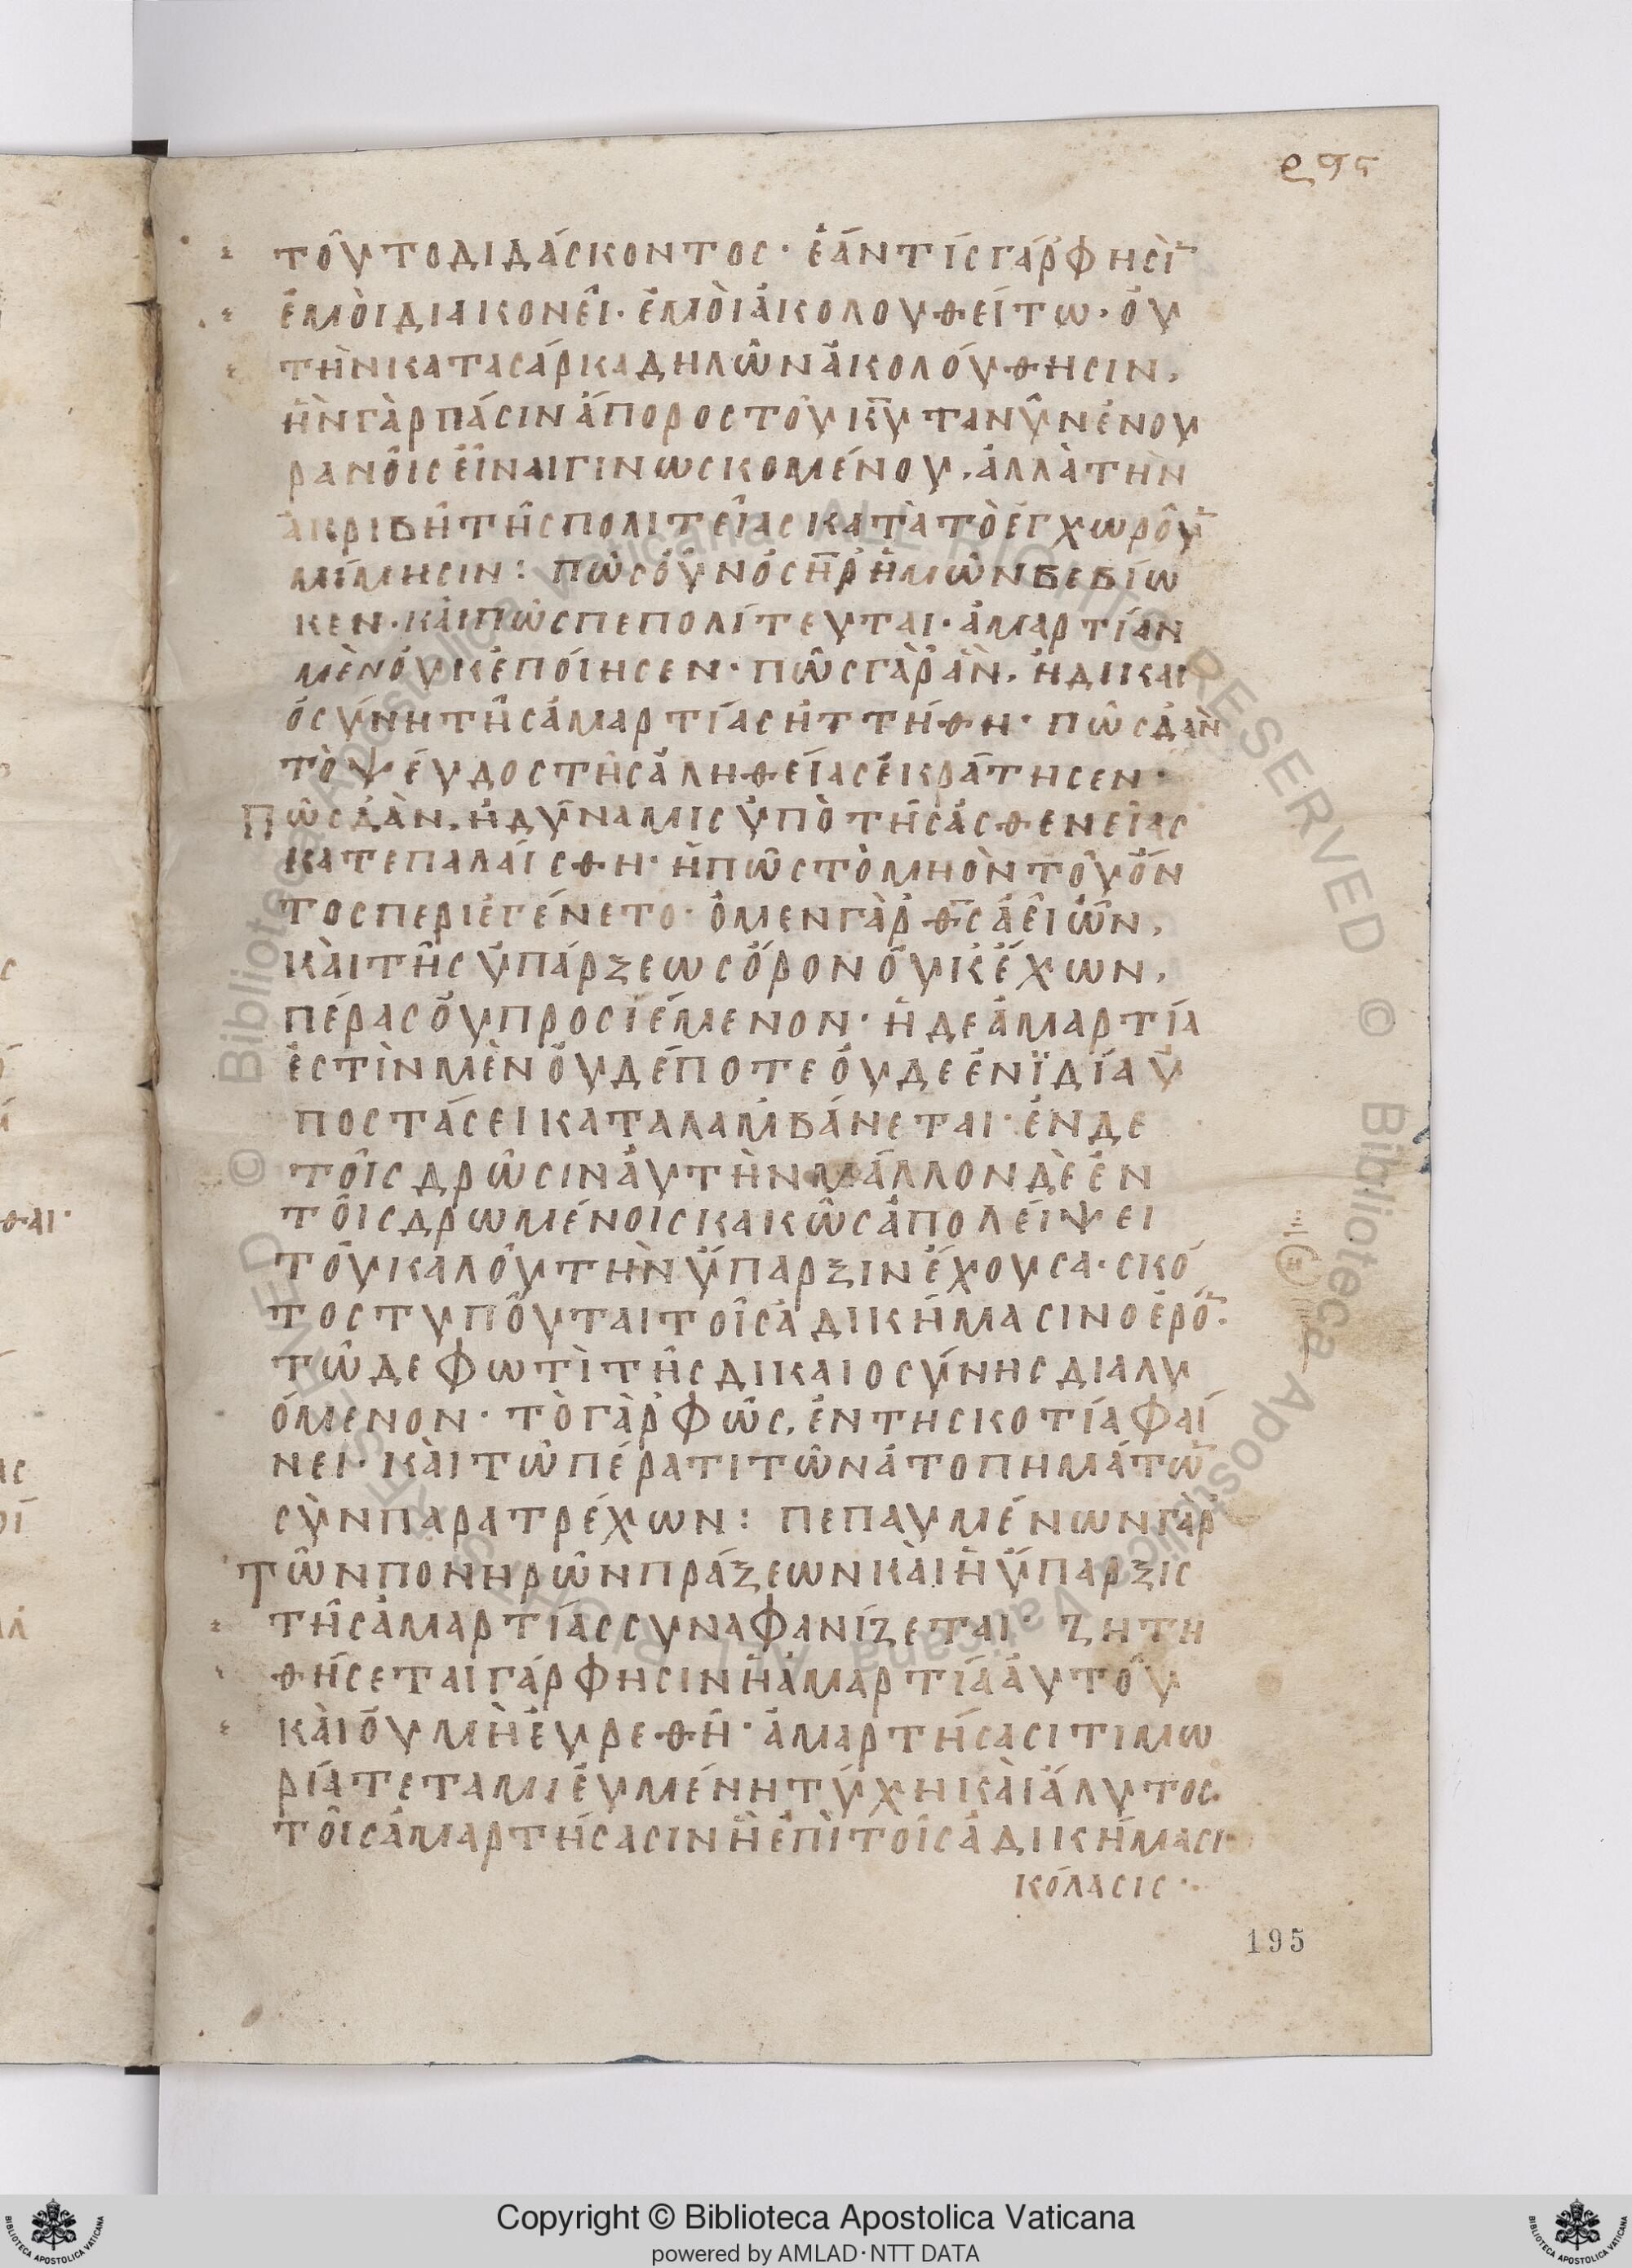 ϙ̅ϛ
τοῦτο διδάσκοντος· ἐάν τίς γάρ φησὶ̅
ἐμοὶ διακονεῖ· ἐμοὶ ἀκολουθείτω· οὐ
τὴν κατα σάρκα δηλῶν ἀκολούθησιν,
ἣν γὰρ πάσιν ἄπορος τοῦ κ̅υ τανῦν ἐν ου
ρανοῖς εἶναι γινωσκομένου, ἀλλὰ τὴν
ἀκριβῆ τῆς πολιτείας κατὰ τὸ ἐγχωροῦ̅
μίμησιν: πῶς οὖν ὁ σ̅η̅ρ ἡμῶν βεβίω
κεν· καὶ πῶς πεπολίτευται· ἁμαρτίαν
μὲν οὐκ ἐποίησεν· πῶς γὰρ ἂν, ἡ δικαι
οσύνη τῆς ἁμαρτίας ἡττήθη· πῶς δἂν
τὸ ψεύδος τῆς ἀληθείας ἐκράτησεν·
Πῶς δὰν, ἡ δύναμις ὑπὸ τῆς ἀσθενείας
κατεπαλαίσθη· ἢ πῶς τὸ μη ὸν τοῦ ὄν
τος περιεγένετο· ὁ μεν γὰρ θ̅ς ἀεὶ ὤν,
καὶ τῆς ὑπάρξεως ὅρον οὐκ ἔχων,
πέρας οὐ προσιέμενον· ἡ δε ἁμαρτία
ἐστὶν μὲν οὐδέποτε οὐδε ἐν ϊδία ὑ
ποστάσει καταλαμβάνεται· ἐν δε
τοῖς δρῶσιν ἀυτὴν μᾶλλον δὲ ἐν
τοῖς δρωμένοις κακῶς ἀπολείψει
τοῦ καλοῦ τὴν ὕπαρξιν ἔχουσα· σκό
τος τυποῦται τοῖς ἀδικήμασι νοερὸ̅·
τῶ δε φωτὶ τῆς δικαιοσύνης διαλυ
όμενον· τὸ γὰρ φῶς, ἐν τη σκοτία φαί
νει· καὶ τῶ πέρατι τῶν ἀτοπημάτω̅
σὺν παρατρέχων: πεπαυμένων γὰρ
τῶν πονηρῶν πράξεων καὶ ἡ ὕπαρξις
τῆς ἁμαρτίας συναφανίζεται· ζητη
θήσεται γάρ φησιν ἡ ἁμαρτία ἀυτοῦ
καὶ οὐ μὴ ἑυρεθῆ· ἁμαρτήσασι τιμω
ρία τεταμιευμένη τύχη καὶ ἄλυτος
τοῖς ἁμαρτήσασιν ἡ ἐπὶ τοῖς ἀδικήμασι
κόλασις·
195
Copyright © Biblioteca Apostolica Vaticana
powered by AMLAD·NTT DATA